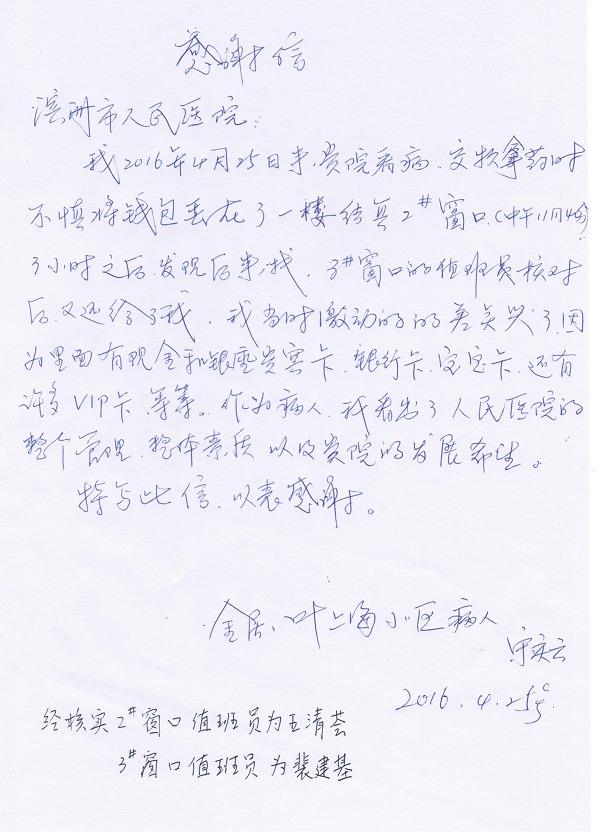 感谢信
滨州市人民医院:
我2016年4月25日来贵院看病.交款拿药时
不慎将钱包丢在了一楼结算2#窗口.(中午11点40分)
3小时之后.发现后来找.3#窗口的值班员核对
后.又还给了我.我当时激动的的差点哭了.因
为里面有现金和银座贵宾卡.银行卡.定宝卡.还有
许多VIP卡.等等。作为病人.我看出了人民医院的
整个管理.整体素质以及贵院的发展希望。
特与此信.以表感谢。
金居.叶上海小区病人
2016.4.25
经核实2#窗口值班员为王清荟
3#窗口值班员为裴建基